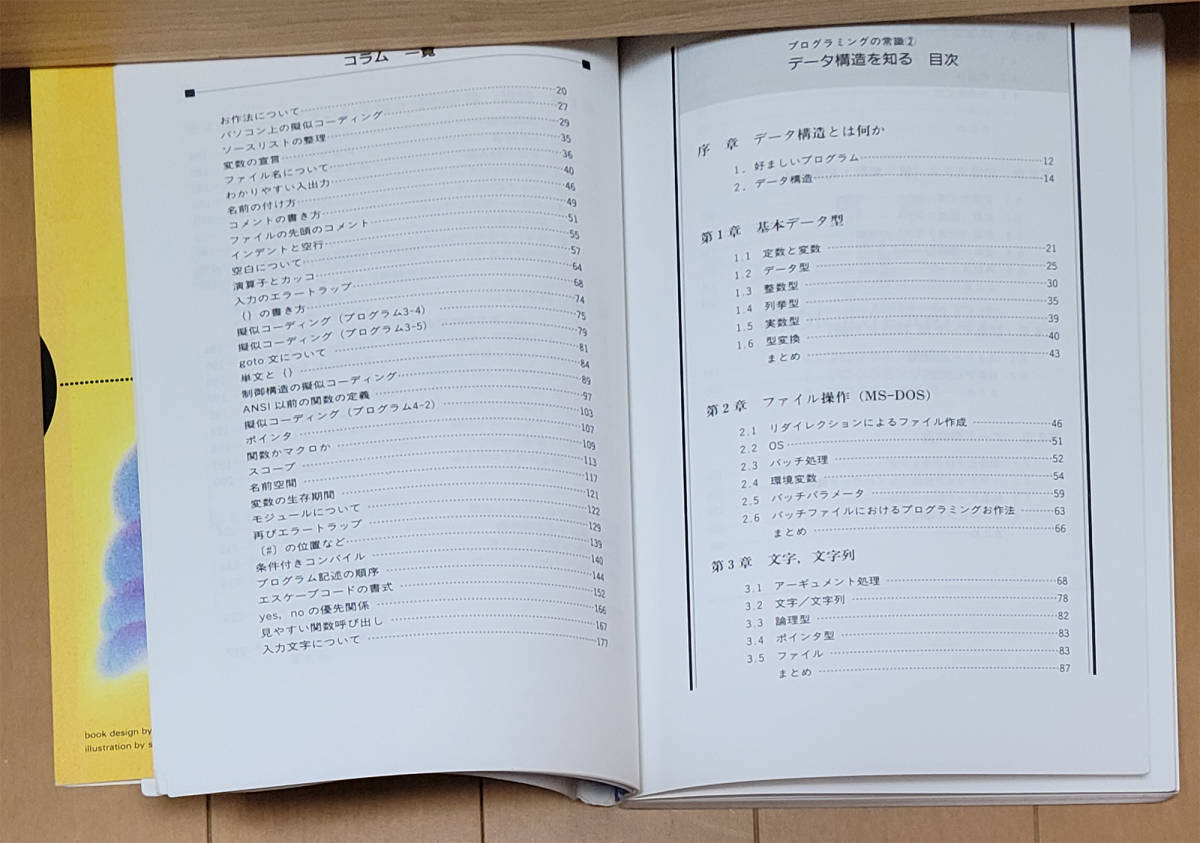 コラム 一覧
お作法について 20
パソコン上の擬似コーディング 27
ソースリストの整理 29
変数の宣言 35
ファイル名について 36
わかりやすい入出力 40
名前の付け方 46
コメントの書き方 49
ファイルの先頭のコメント 51
インデントと空行 55
空白について 57
演算子とカッコ 64
入力のエラートラップ 68
{}の書き方 74
擬似コーディング(プログラム3-4) 75
擬似コーディング(プログラム3-5) 79
goto 文について 81
単文と{} 84
制御構造の擬似コーディング 89
ANSI 以前の関数の定義 97
擬似コーディング(プログラム4-2) 103
ポインタ 107
関数かマクロか 109
スコープ 113
名前空間 117
変数の生存期間 121
モジュールについて 122
再びエラートラップ 129
{#}の位置など 139
条件付きコンパイル 140
プログラム記述の順序 144
エスケープコードの書式 152
yes, no の優先関係 166
見やすい関数呼び出し 167
入力文字について 177
book design by
illustration by s
プログラミングの常識②
データ構造を知る 目次
序 章 データ構造とは何か
1. 好ましいプログラム 12
2. データ構造 14
第1章 基本データ型
1.1 定数と変数 21
1.2 データ型 25
1.3 整数型 30
1.4 列挙型 35
1.5 実数型 39
1.6 型変換 40
まとめ 43
第2章 ファイル操作(MS-DOS)
2.1 リダイレクションによるファイル作成 46
2.2 OS 51
2.3 バッチ処理 52
2.4 環境変数 54
2.5 バッチパラメータ 59
2.6 バッチファイルにおけるプログラミングお作法 63
まとめ 66
第3章 文字，文字列
3.1 アーギュメント処理 68
3.2 文字／文字列 78
3.3 論理型 82
3.4 ポインタ型 83
3.5 ファイル 83
まとめ 87